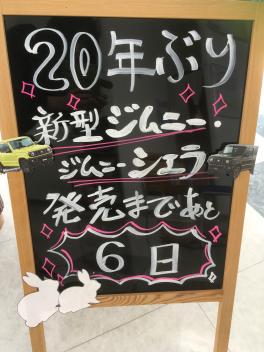 20年ぶり
新型ジムニー・
ジムニーシエラ
発売まであと
6日